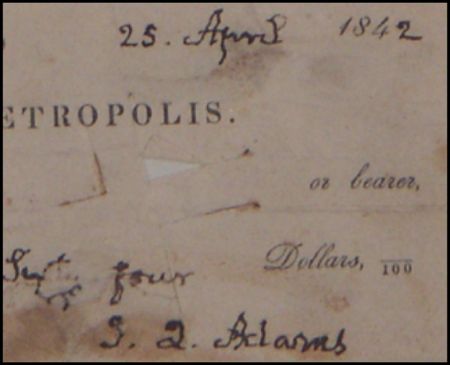 25. April 1842
ETROPOLIS.
or bearer,
Sixty four Dollars, 100
J. Q. Adams